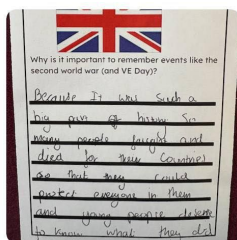 Why is it important to remember events like the
second world war (and VE Day)?
Because It was such a
big part of history So
many people fought and
died for their Countries
so that they could
protect everyone in them
and young people deserve
to know what they did